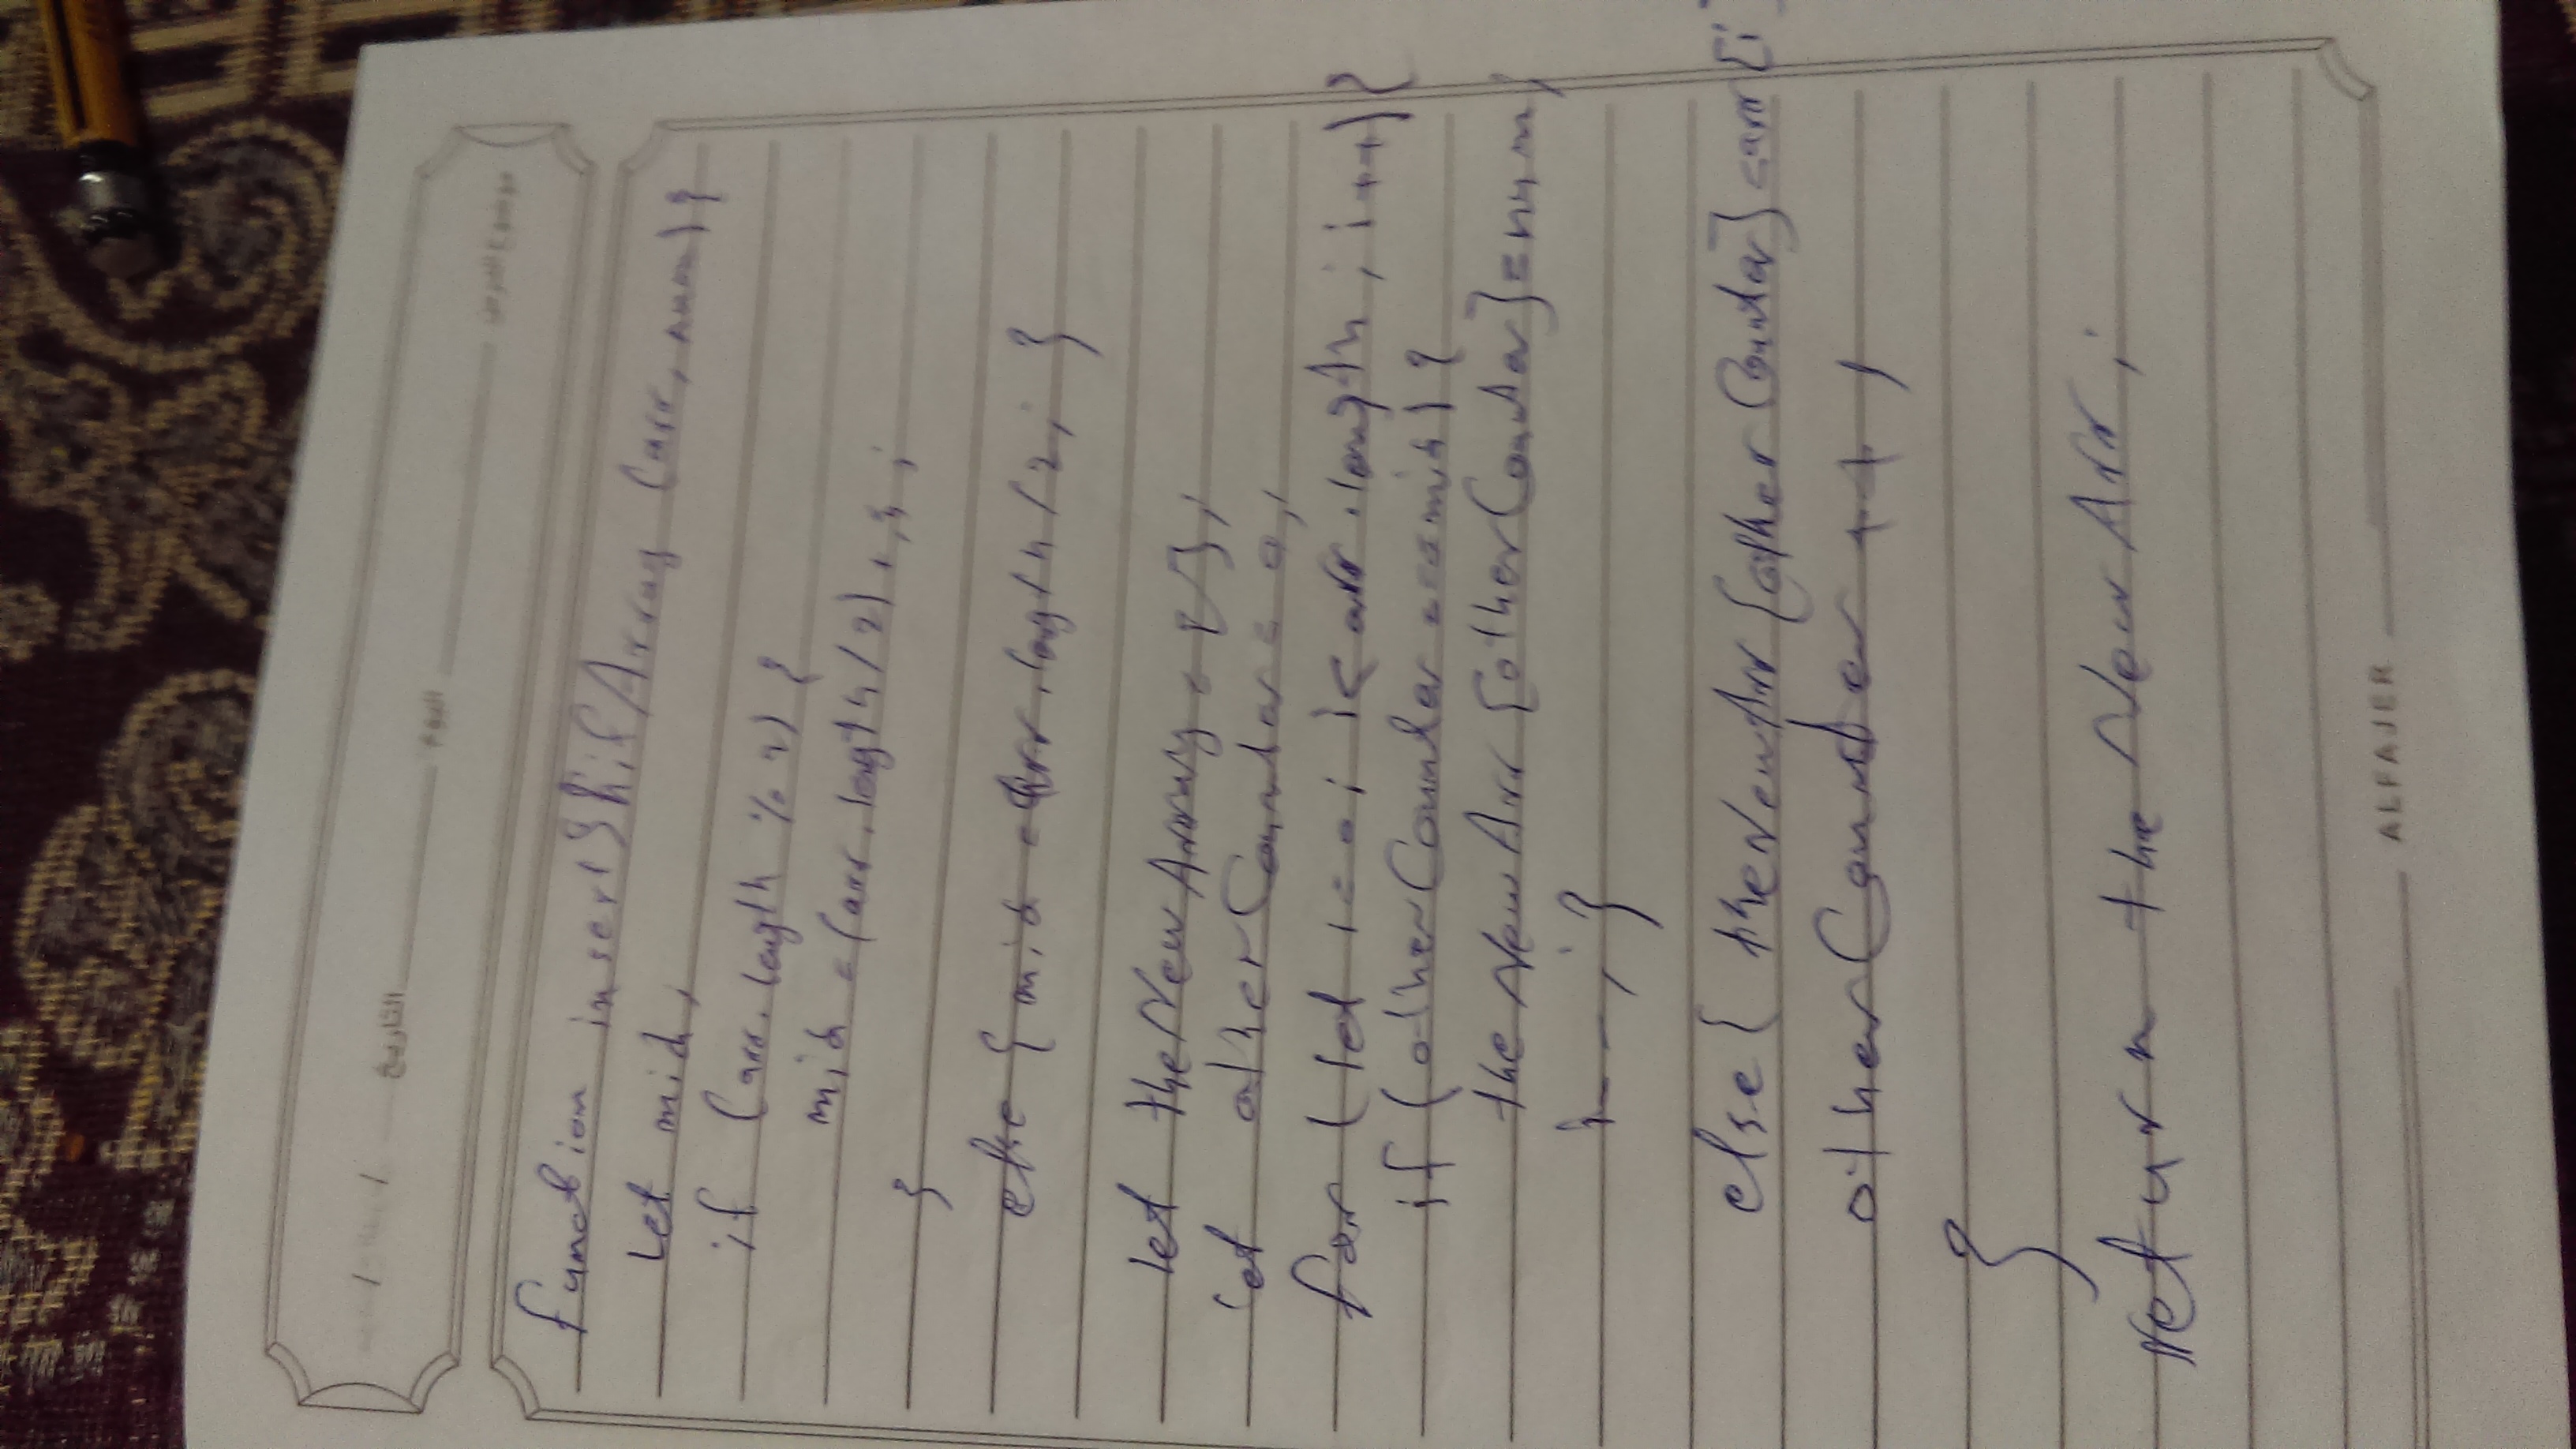 التاريخ / / اليوم الموضوع
function insertShiftArray (arr, num) {
let mid;
if (arr.length % 2) {
mid = (arr.length / 2)
}
else { mid = arr.length / 2 ; }
let theNewArray = [];
let otherCounter = 0;
for (let i = 0 ; i < arr.length ; i++) {
if (otherCounter === mid) {
theNewArr [otherCounter] = num;
i--; }
else { theNewArr [otherCounter] = arr [i]
otherCounter ++;
}
return theNewArr;
ALFAJER